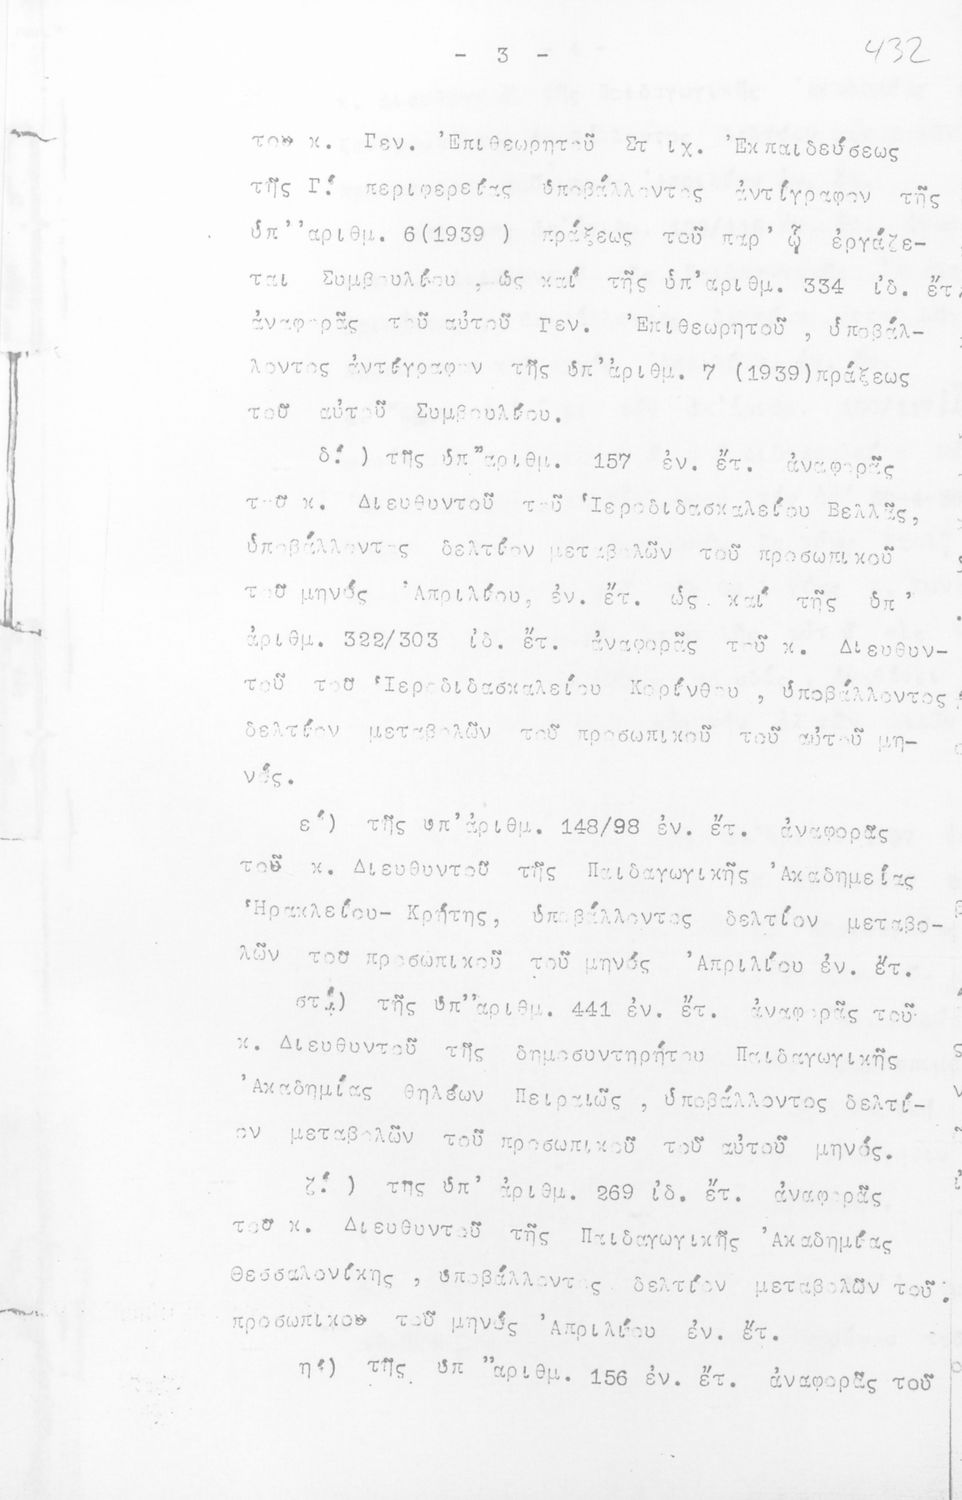 - 3 -
432
τοῦ κ. Γεν. Ἐπιθεωρητοῦ Στοιχ. Ἐκπαιδεύσεως
τῆς Γ΄ περιφερείας ὑποβάλλοντος ἀντίγραφον τῆς
ὑπ' ἀριθμ. 6(1939 ) πράξεως τοῦ παρ' ᾧ ἐργάζε-
ται Συμβουλίου , ὡς καί τῆς ὑπ' ἀριθμ. 334 ἰδ. ἔτ.
ἀναφορᾶς τοῦ αὐτοῦ Γεν. Ἐπιθεωρητοῦ , ὑποβάλ-
λοντος ἀντίγραφον τῆς ὑπ' ἀριθμ. 7 (1939)πράξεως
τοῦ αὐτοῦ Συμβουλίου.
δ΄ ) τῆς ὑπ' ἀριθμ. 157 ἐν. ἔτ. ἀναφορᾶς
τοῦ κ. Διευθυντοῦ τοῦ Ἱεροδιδασκαλείου Βελλᾶς,
ὑποβάλλοντος δελτίον μεταβολῶν τοῦ προσωπικοῦ
τοῦ μηνός Ἀπριλίου, ἐν. ἔτ. ὡς καί τῆς ὑπ'
ἀριθμ. 322/303 ἰδ. ἔτ. ἀναφορᾶς τοῦ κ. Διευθυν-
τοῦ τοῦ Ἱεροδιδασκαλείου Κορίνθου , ὑποβάλλοντος
δελτίον μεταβολῶν τοῦ προσωπικοῦ τοῦ αὐτοῦ μη-
νός.
ε΄) τῆς ὑπ' ἀριθμ. 148/98 ἐν. ἔτ. ἀναφορᾶς
τοῦ κ. Διευθυντοῦ τῆς Παιδαγωγικῆς Ἀκαδημείας
Ἡρακλείου- Κρήτης, ὑποβάλλοντος δελτίον μεταβο-
λῶν τοῦ προσωπικοῦ τοῦ μηνός Ἀπριλίου ἐν. ἔτ.
στ΄) τῆς ὑπ' ἀριθμ. 441 ἐν. ἔτ. ἀναφορᾶς τοῦ
κ. Διευθυντοῦ τῆς δημοσυντηρήτου Παιδαγωγικῆς
Ἀκαδημίας θηλέων Πειραιῶς , ὑποβάλλοντος δελτί-
ον μεταβολῶν τοῦ προσωπικοῦ τοῦ αὐτοῦ μηνός.
ζ΄ ) τῆς ὑπ' ἀριθμ. 269 ἰδ. ἔτ. ἀναφορᾶς
τοῦ κ. Διευθυντοῦ τῆς Παιδαγωγικῆς Ἀκαδημίας
Θεσσαλονίκης , ὑποβάλλοντος δελτίον μεταβολῶν τοῦ
προσωπικοῦ τοῦ μηνός Ἀπριλίου ἐν. ἔτ.
η΄) τῆς ὑπ' ἀριθμ. 156 ἐν. ἔτ. ἀναφορᾶς τοῦ